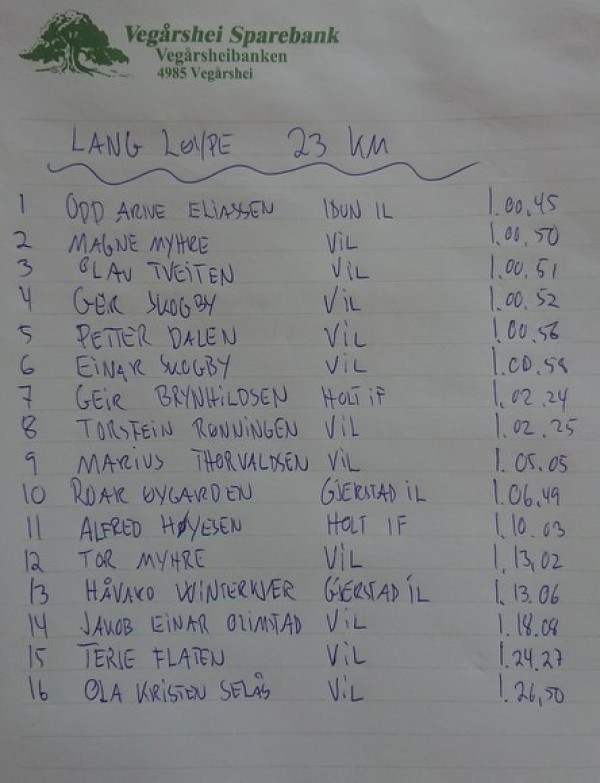 Vegårshei Sparebank
Vegårsheibanken
4985 Vegårshei
LANG LØYPE 23 KM
1 ODD ARNE ELIASSEN IDUN IL 1.00.45
2 MAGNE MYHRE VIL 1.00.50
3 OLAV TVEITEN VIL 1.00.51
4 GEIR SKOGBY VIL 1.00.52
5 PETTER DALEN VIL 1.00.56
6 EINAR SKOGBY VIL 1.00.59
7 GEIR BRYNHILDSEN HOLT IF 1.02.24
8 TORSTEIN RØNNINGEN VIL 1.02.25
9 MARIUS THORVALDSEN VIL 1.05.05
10 ROAR ØYGARDEN GJERSTAD IL 1.06.49
11 ALFRED HØYESEN HOLT IF 1.10.03
12 TOR MYHRE VIL 1.13,02
13 HÅVARD VINTERKVER GJERSTAD IL 1.13.06
14 JAKOB EINAR OLIMSTAD VIL 1.18.08
15 TERJE FLATEN VIL 1.24.27
16 OLA KRISTEN SELÅS VIL 1.26,50